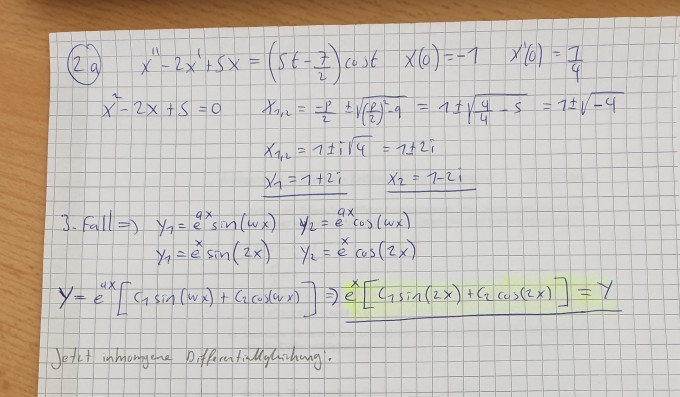 2a x'' - 2x' + 5x = (5t - 7/2) cost x(0) = -1 x'(0) = 1/4
x² - 2x + 5 = 0 x₁,₂ = -p/2 ± √((p/2)² - q) = 1 ± √(4/4 - 5) = 1 ± √-4
x₁,₂ = 1 ± i√4 = 1 ± 2i
x₁ = 1 + 2i x₂ = 1 - 2i
3. Fall ⇒ y₁ = e^ax sin(wx) y₂ = e^ax cos(wx)
y₁ = e^x sin(2x) y₂ = e^x cos(2x)
Y = e^ax [C₁ sin(wx) + C₂ cos(wx)] ⇒ e^x [C₁ sin(2x) + C₂ cos(2x)] = Y
Jetzt Differentialgleichung: